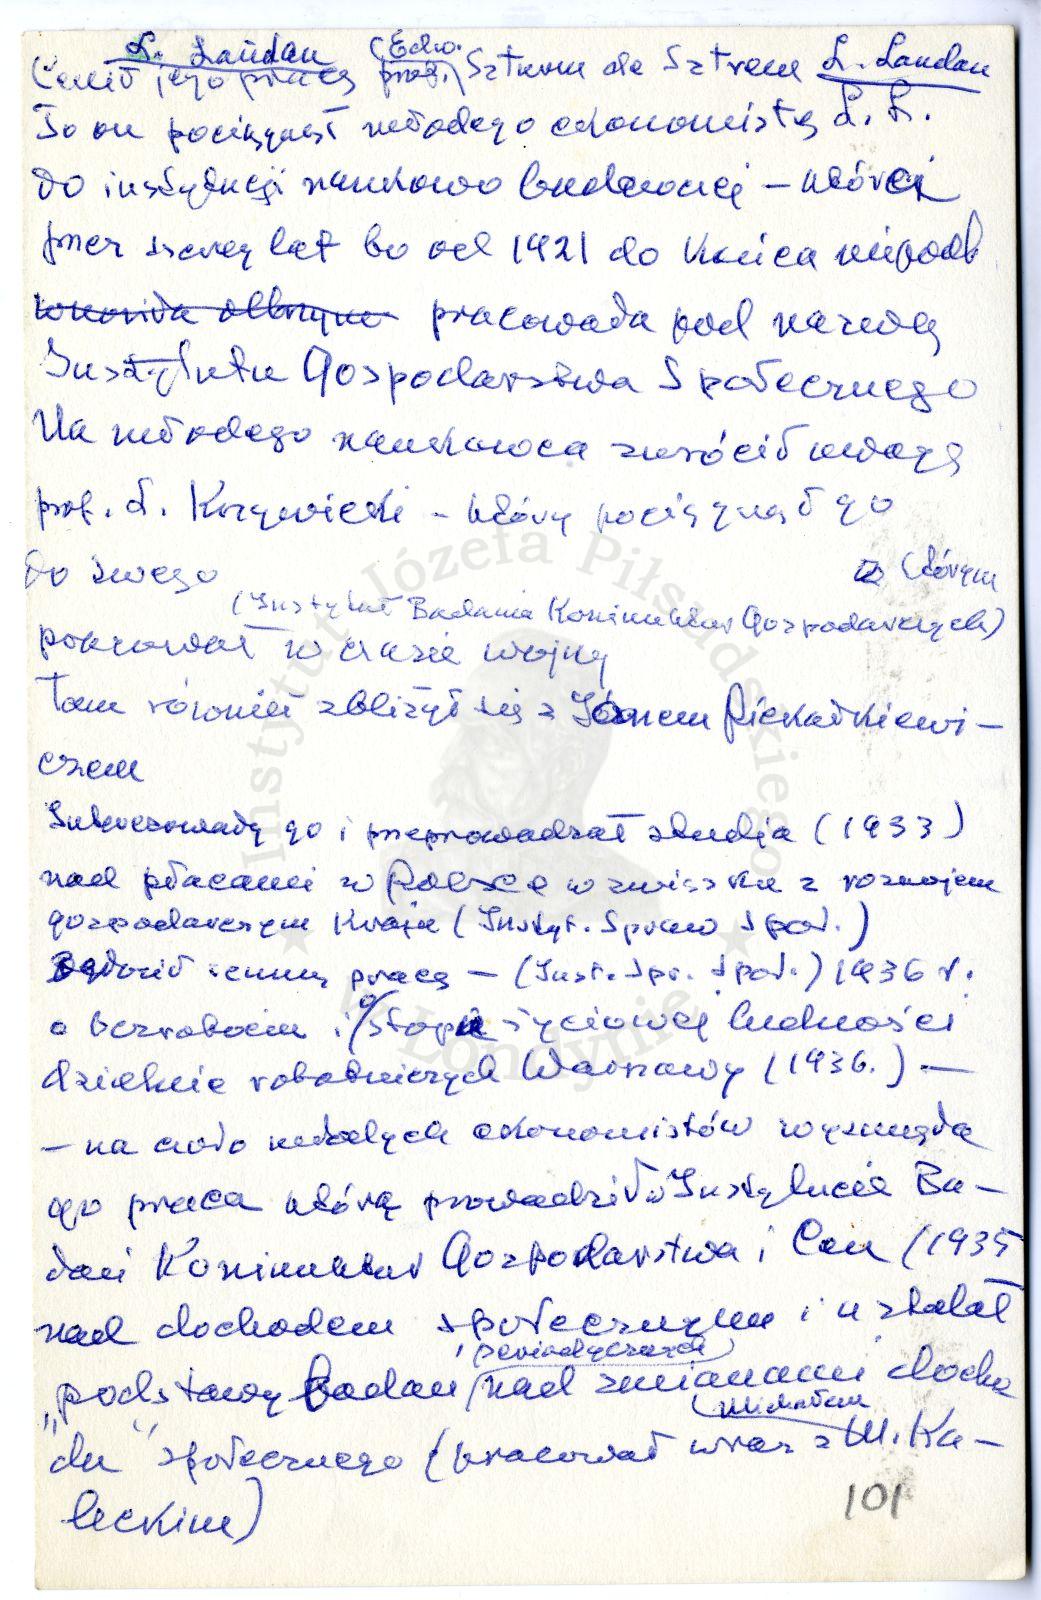 L. Landau
Cenił jego pracę (Edw. prof.) Szturm de Sztrem L. Landau
To on pociągnął młodego ekonomistę L. L.
do instytucji naukowo badawczej – której
przez szereg lat bo od 1921 do końca niepodl
pracowała pod nazwą
Instytutu Gospodarstwa Społecznego
Na młodego naukowca zwrócił uwagę
prof. L. Krzywicki – który pociągnął go
do swego z którym
(Instytut Badania Koniunktur Gospodarczych)
pracował w czasie wojny
Tam również zbliżył się z Janem Piekałkiewi–
czem
go i przeprowadzał studja (1933)
nad płacami w Polsce w związku z rozwojem
gospodarczym Kraju (Instyt. Spraw Społ.)
cenną pracę – (Inst. Spr. Społ.) 1936 r.
o bezrobociu i o stopie życiowej ludności
dzielnic robotniczych Warszawy (1936.) –
– na czoło młodych ekonomistów wysunęła
go praca którą prowadził w Instytucie Ba–
dań Koniunktur Gospodarstwa i Cen (1935
nad dochodem społecznym i ustalał
periodycznych
„podstawy Badań nad zmianami docho
Michałem
du" społecznego (pracował wraz z M. Ka–
leckim)
101
Instytut Józefa Piłsudskiego
w Londynie